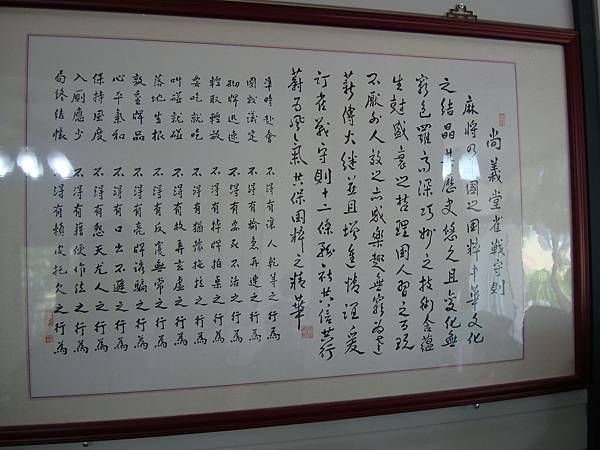 尚義堂雀戰守則
麻將乃中國之國粹中華文化
之結晶其歷史悠久且變化無
窮包羅高深巧妙之技術含蘊
生尅盛衰之哲理國人習之百玩
不厭外人效之亦感樂趣無窮為
薪傳火繼並且增進情誼爰
訂雀戰守則十二條祈社共信共行
蔚為風氣共保國粹之精華
準時赴會 不得有讓人乾等之行為
圈數議定 不得有輸急再連之行為
砌牌迅速 不得有亂不治之行為
輕取輕放 不得有摔牌拍桌之行為
要吃就吃 不得有猶豫拖拉之行為
叫碰就碰 不得有故弄玄虛之行為
落地生根 不得有反覆無常之行為
敦重牌品 不得有亮牌誘騙之行為
心平氣和 不得有口出不遜之行為
保持風度 不得有怨天尤人之行為
入厠應少 不得有藉便作法之行為
局終結帳 不得有賴皮拖欠之行為